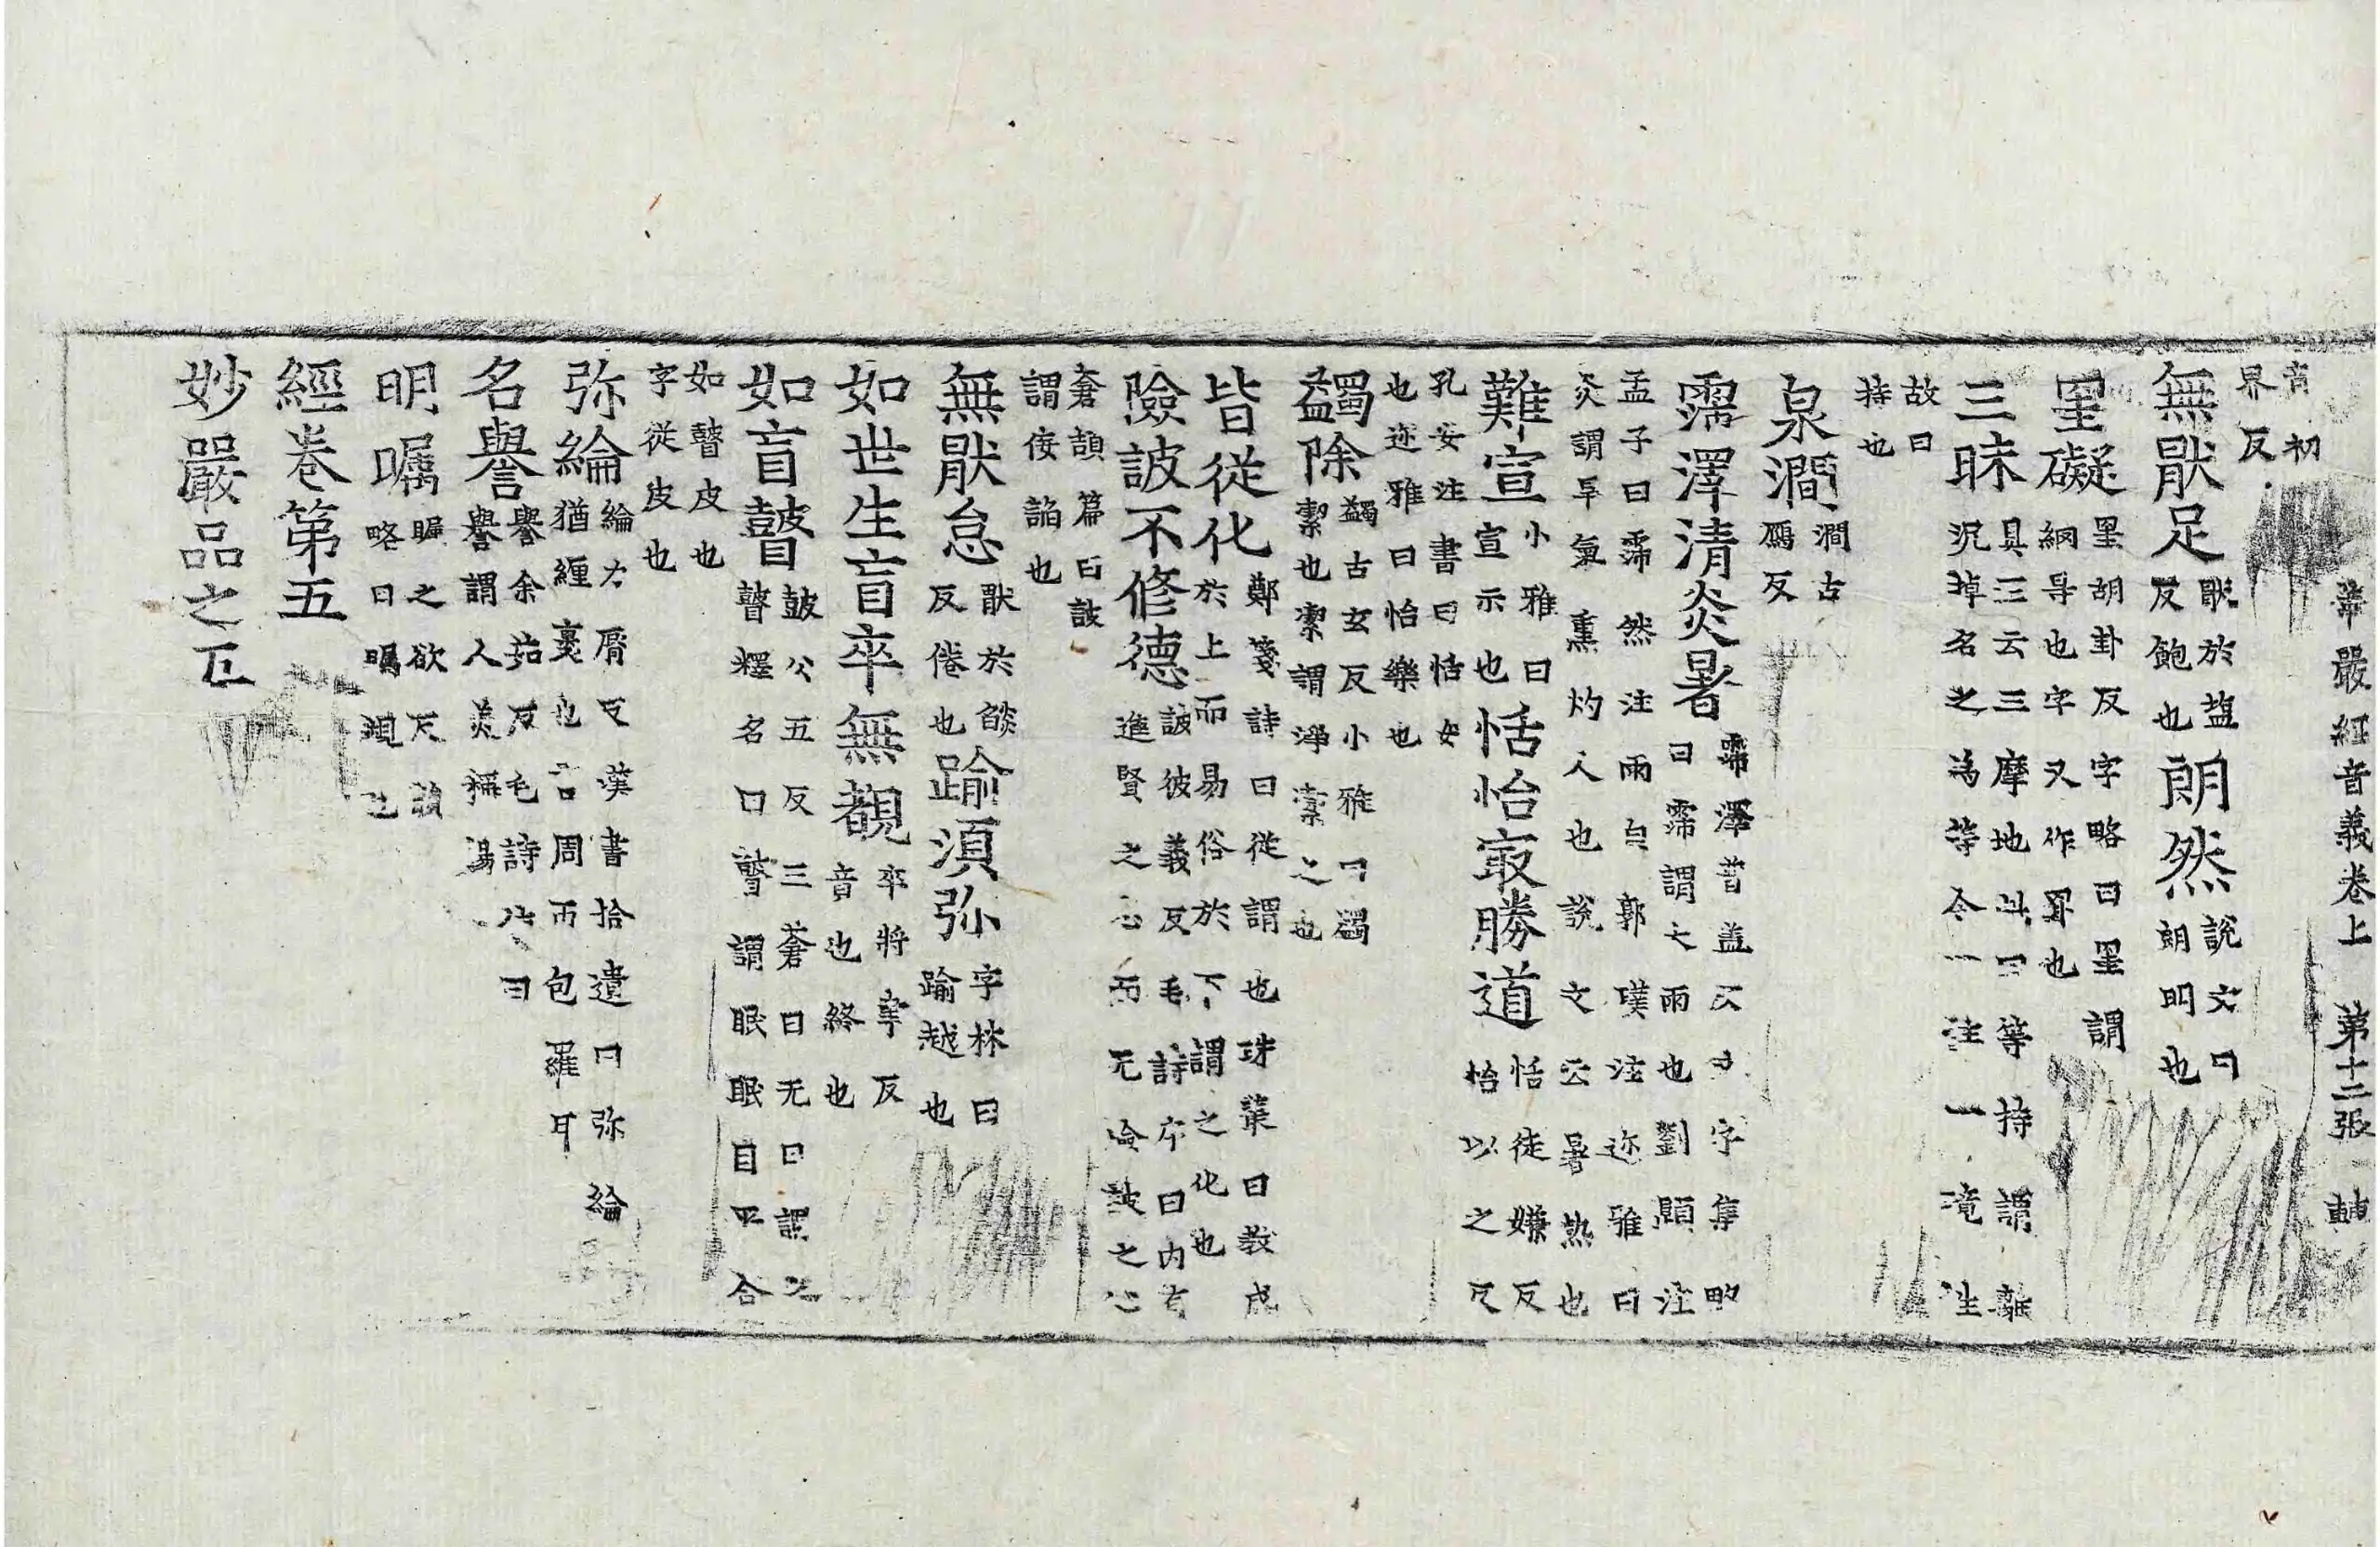 華嚴經音義卷上 第十二張
初
界反
無猒足 猒於塩反飽也 朗然 說文曰朗明也
罣礙 罣胡卦反字略曰罣謂網导也字又作罫也
三昧 具三云三摩地此曰等持謂離沉掉名之為等令一注一性
故曰持也
泉澗 澗古鴈反
霈澤清炎暑 霈澤普盖反字集略曰霈謂大雨也劉熙注
孟子曰霈然注雨皃郭璞注迩雅曰炎謂旱氣熏灼人也說文云暑熱也
難宣 小雅曰宣示也 恬怡㝡勝道 恬徒嫌反怡以之反
孔安注書曰恬安也迩雅曰怡樂也
蠲除 蠲古玄反小雅曰蠲潔也潔謂淨潔之也
皆從化 鄭箋詩曰從謂也珠叢曰教成於上而易俗於下謂之化也
險詖不修德 詖彼義反毛詩序曰内有進賢之志而无險詖之心
蒼頡篇曰詖謂佞諂也
無猒怠 猒於餤反倦也 踰湏弥 字林曰踰越也
如世生盲卒無覩 卒將聿反音也終也
如盲瞽 瞽公五反三蒼曰无目謂之瞽釋名曰瞽謂眠眠目平合
如瞽皮也字從皮也
弥綸 綸力脣反漢書拾遺曰弥綸猶纏裹也言周帀包羅耳
名譽 譽余茹反毛詩傳曰譽謂人美稱揚
明矚 矚之欲反韻略曰矚視也
經卷第五
妙嚴品之五